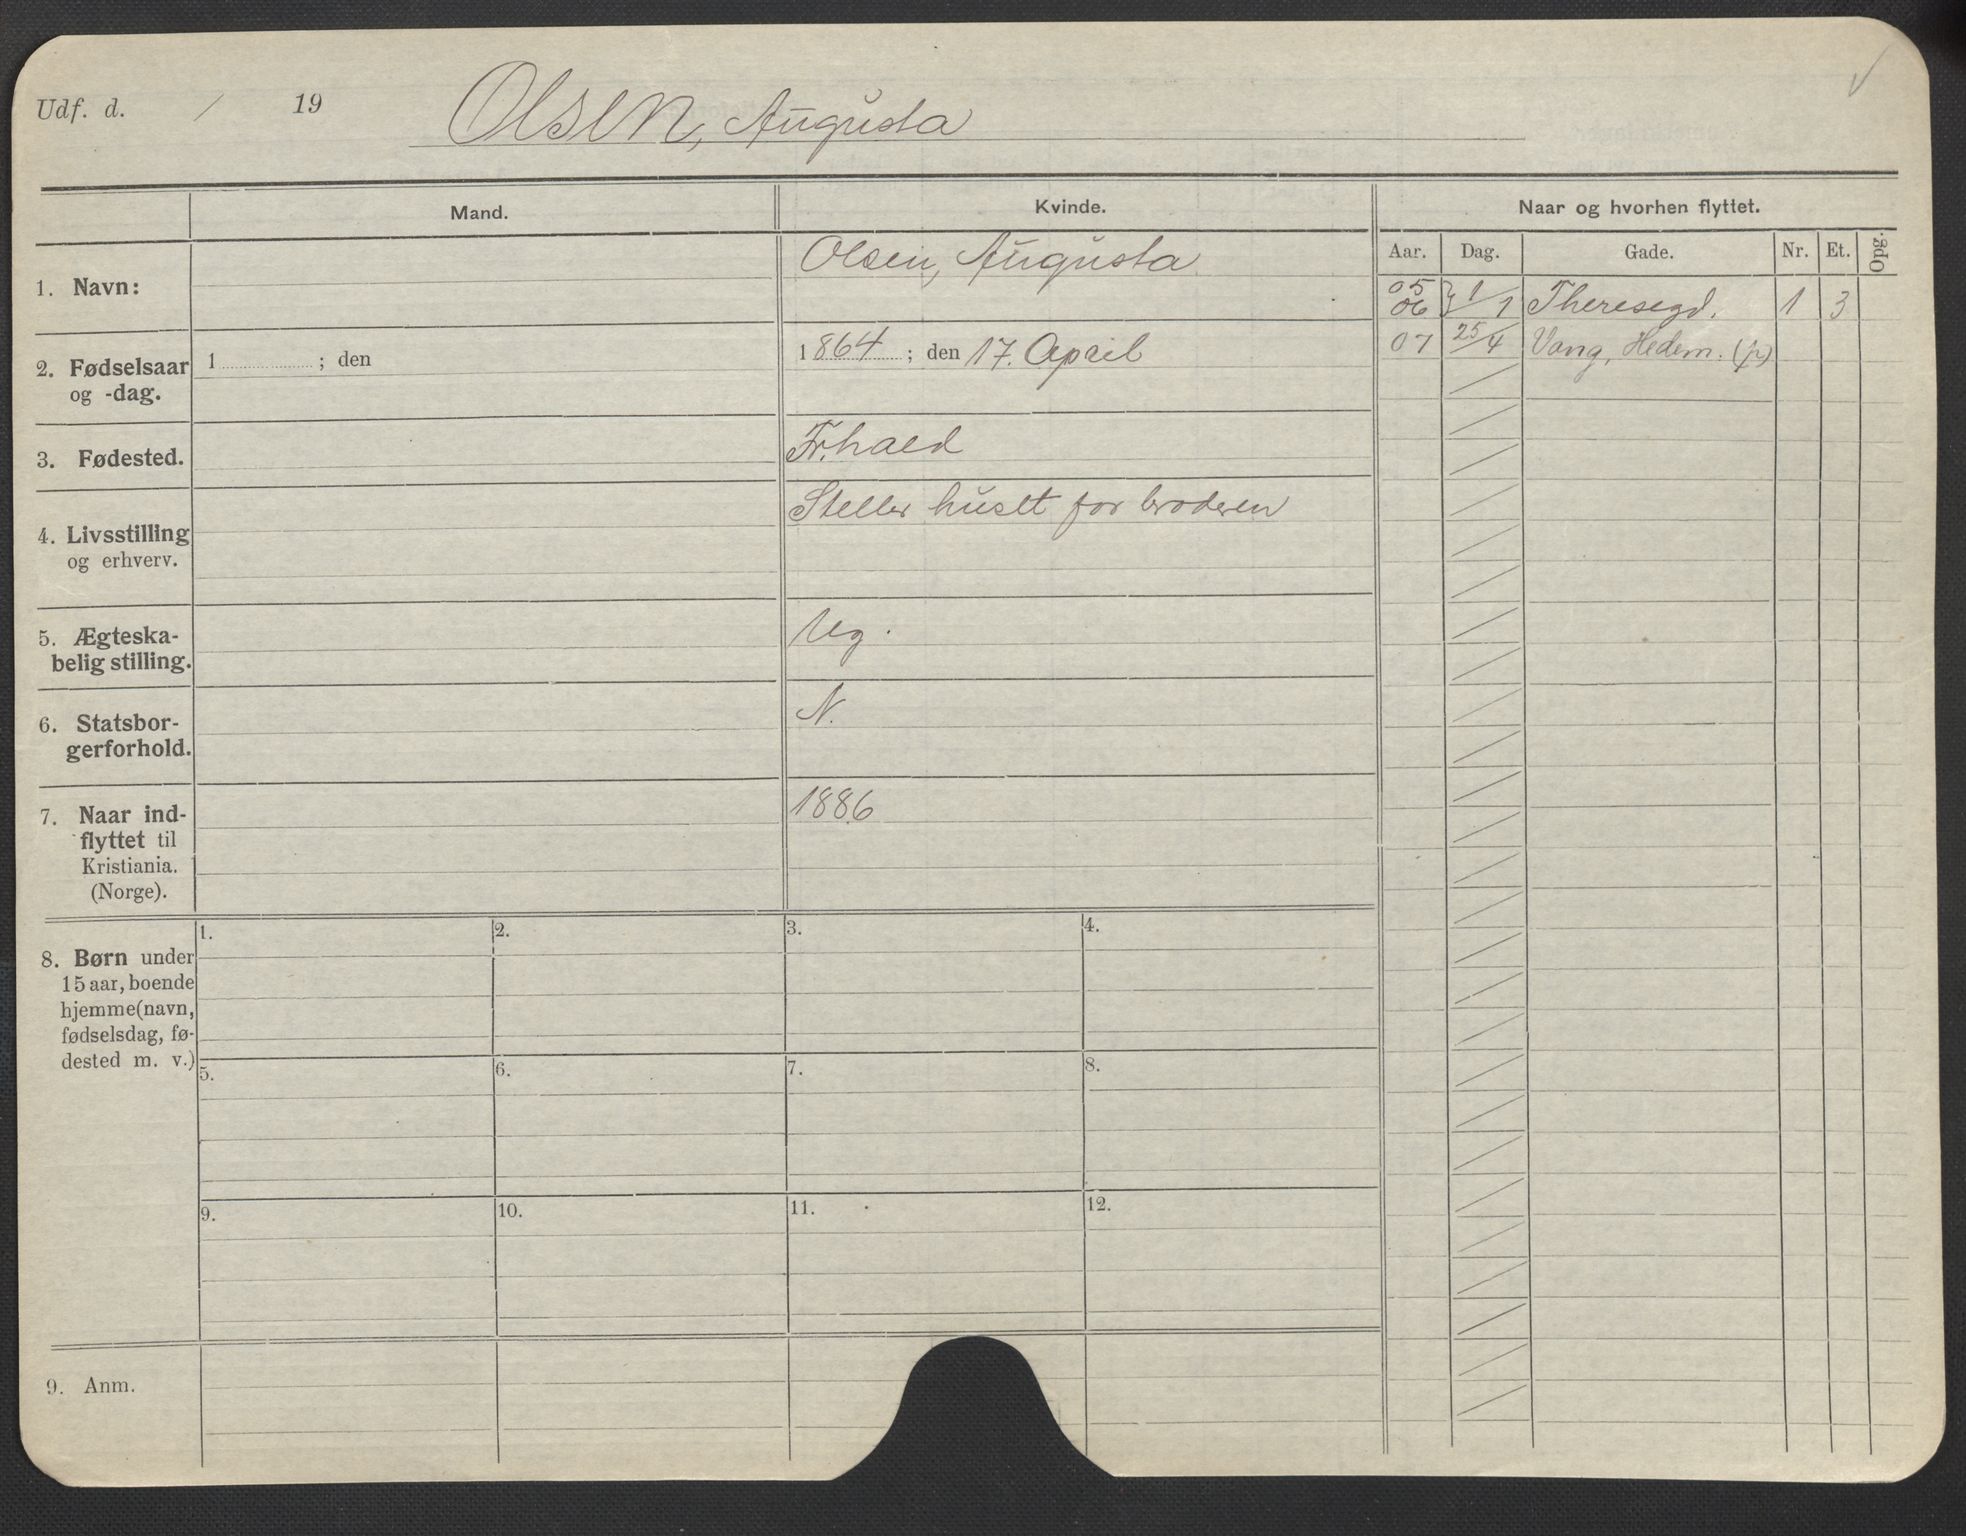 Udf. d. / 19 Olsen, Augusta
Mand. Kvinde. Naar og hvorhen flyttet.
Aar. Dag. Gade. Nr. Et. Opg.
1. Navn: Olsen, Augusta
05
06 } 1/1 Theresegd. 1 3
07 25/4 Vang, Hedem. (fr)
2. Fødselsaar
og -dag.
1 ; den
1864 ; den 17. April
3. Fødested. Fr.hald
4. Livsstilling
og erhverv.
Steller huset for broderen
5. Ægteska-
belig stilling.
Ug.
6. Statsbor-
gerforhold.
N.
7. Naar ind-
flyttet til
Kristiania.
(Norge).
1886
8. Børn under
15 aar, boende
hjemme (navn,
fødselsdag, fø-
dested m. v.)
1. 2. 3. 4.
5. 6. 7. 8.
9. 10. 11. 12.
9. Anm.